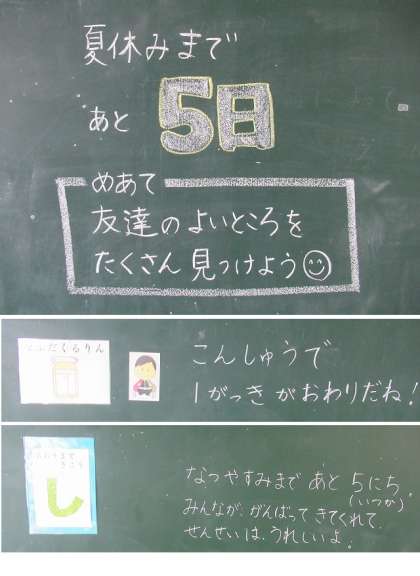 夏休みまで
あと 5日
めあて
友達のよいところを
たくさん見つけよう
こんしゅうで
1がっきがおわりだね!
し
なつやすみまで あと 5にち!
(いつか)
みんなが、がんばって きてくれて、
せんせいは、うれしいよ!